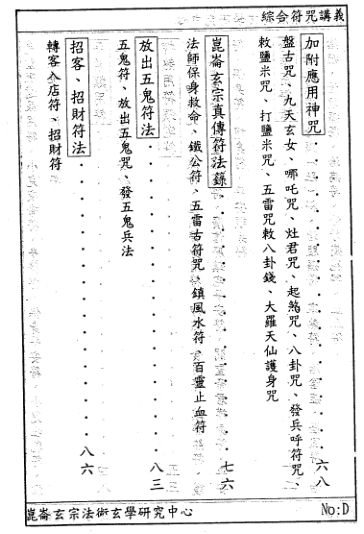 綜合符咒講義
加附應用神咒............六八
盤古咒、九天玄女、哪吒咒、灶君咒、起煞咒、八卦咒、發兵呼符咒、
敕鹽米咒、打鹽米咒、五雷咒敕八卦錢、大羅天仙護身咒
崑崙玄宗真傳符法錄............七六
法師保身救命、鐵公符、五雷古符咒、鎮風水符、百靈止血符
放出五鬼符法............八三
五鬼符、放出五鬼咒、發五鬼兵法
招客、招財符法............八六
轉客入店符、招財符
崑崙玄宗法術玄學研究中心
No:D